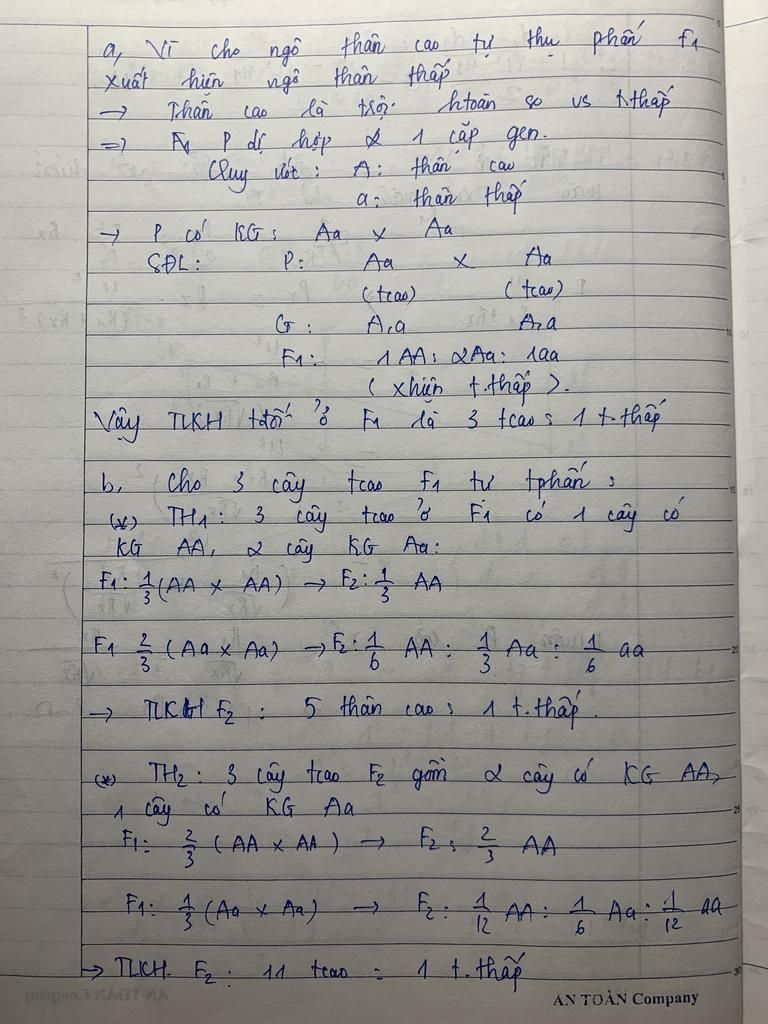 a, Vì cho ngô thân cao tự thụ phấn F1
xuất hiện ngô thân thấp
→ Thân cao là trội htoàn so vs t.thấp
=> P dị hợp 1 cặp gen.
Quy ước: A: thân cao
a: thân thấp
→ P có KG: Aa x Aa
SĐL: P: Aa x Aa
(tcao) (tcao)
G: A,a A,a
F1: 1AA: 2Aa: 1aa
(xhiện t.thấp).
Vậy TLKH ở F1 là 3 tcao: 1 t.thấp
b, Cho 3 cây tcao F1 tự tphấn:
(*) TH1: 3 cây tcao ở F1 có 1 cây có
KG AA, 2 cây KG Aa:
F1: 1/3 (AA x AA) → F2: 1/3 AA
F1 2/3 (Aa x Aa) → F2: 1/6 AA: 1/3 Aa: 1/6 aa
→ TLKH F2: 5 thân cao: 1 t.thấp.
(*) TH2: 3 cây tcao F2 gồm 2 cây có KG AA,
1 cây có KG Aa
F1: 2/3 (AA x AA) → F2: 2/3 AA
F1: 1/3 (Aa x Aa) → F2: 1/12 AA: 1/6 Aa: 1/12 aa
→ TLKH F2: 11 tcao: 1 t.thấp
AN TOÀN Company